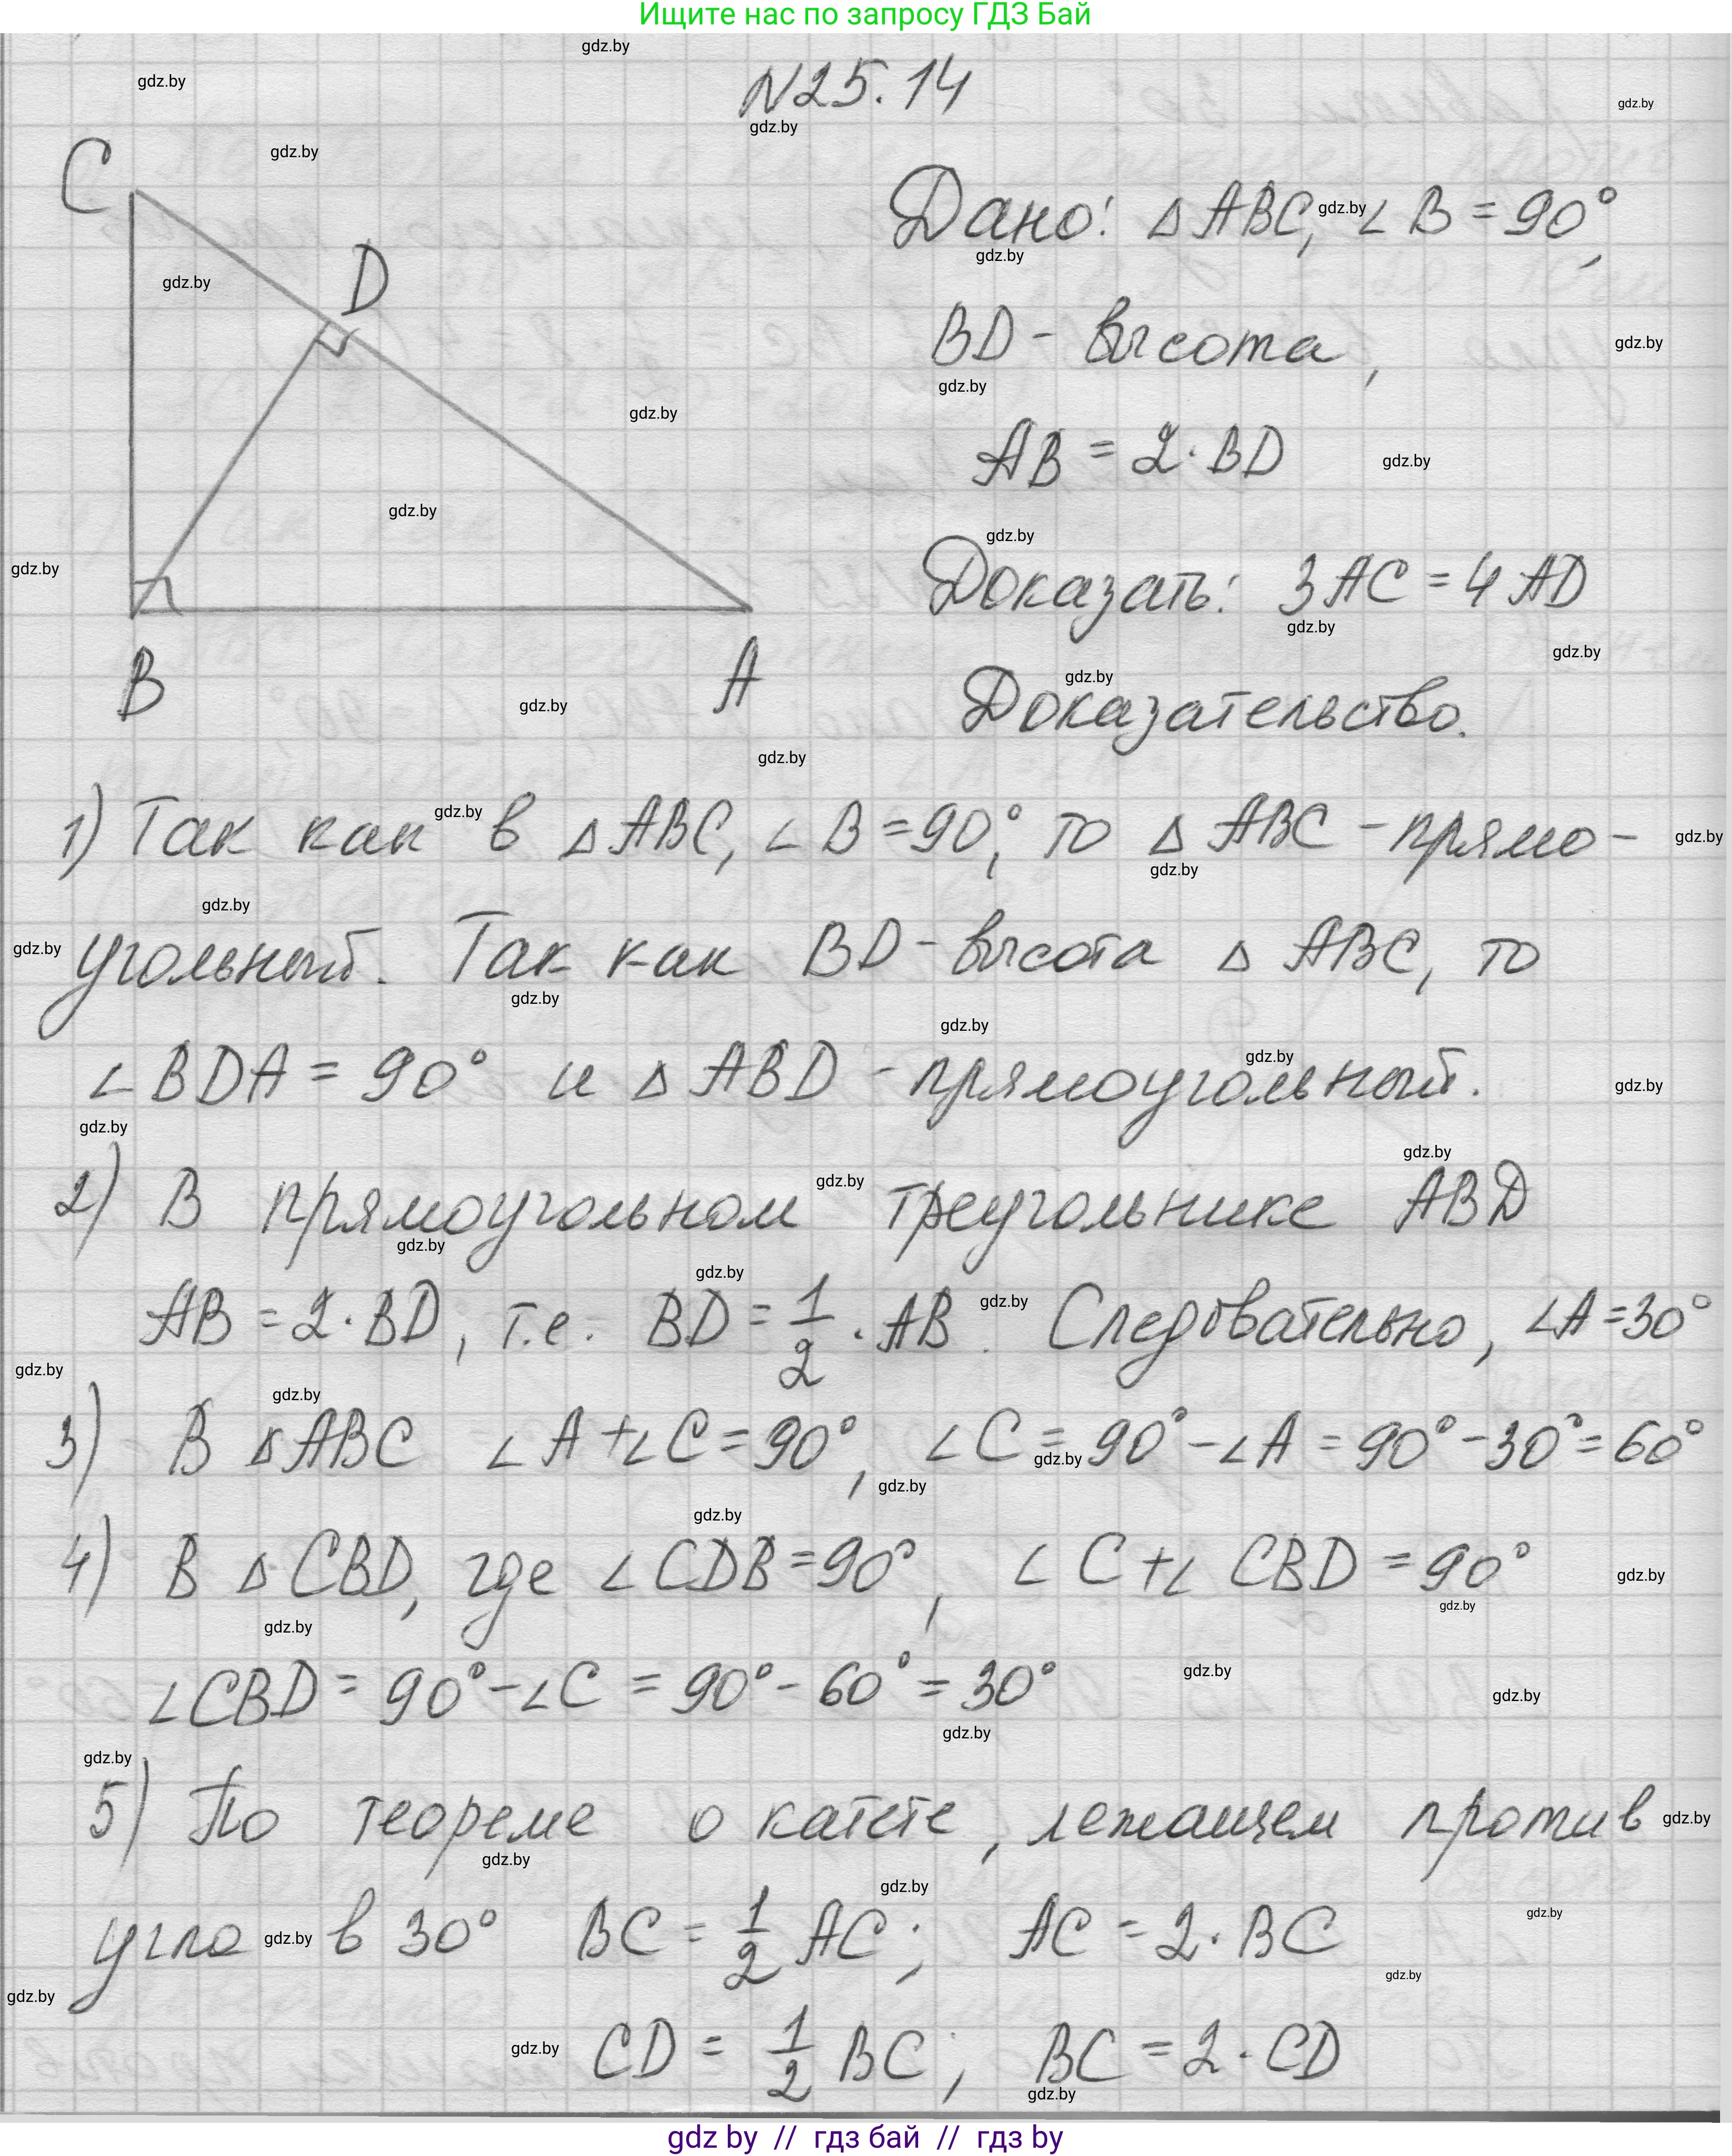 Ищите нас по запросу ГДЗ Бай
N25.14
C
D
B
A
Дано: △ABC, ∠B = 90°,
BD - высота,
AB = 2·BD
Доказать: 3AC = 4AD
Доказательство.
1) Так как в △ABC, ∠B = 90°, то △ABC - прямо-
угольный. Так как BD - высота △ABC, то
∠BDA = 90° и △ABD - прямоугольный.
2) В прямоугольном треугольнике ABD
AB = 2·BD, т.е. BD = 1/2 · AB. Следовательно, ∠A = 30°
3) В △ABC ∠A + ∠C = 90°, ∠C = 90° - ∠A = 90° - 30° = 60°
4) В △CBD, где ∠CDB = 90°, ∠C + ∠CBD = 90°
∠CBD = 90° - ∠C = 90° - 60° = 30°
5) По теореме о катете, лежащем против
угла в 30° BC = 1/2 AC; AC = 2·BC
CD = 1/2 BC; BC = 2·CD
gdz by // гдз бай // гдз by